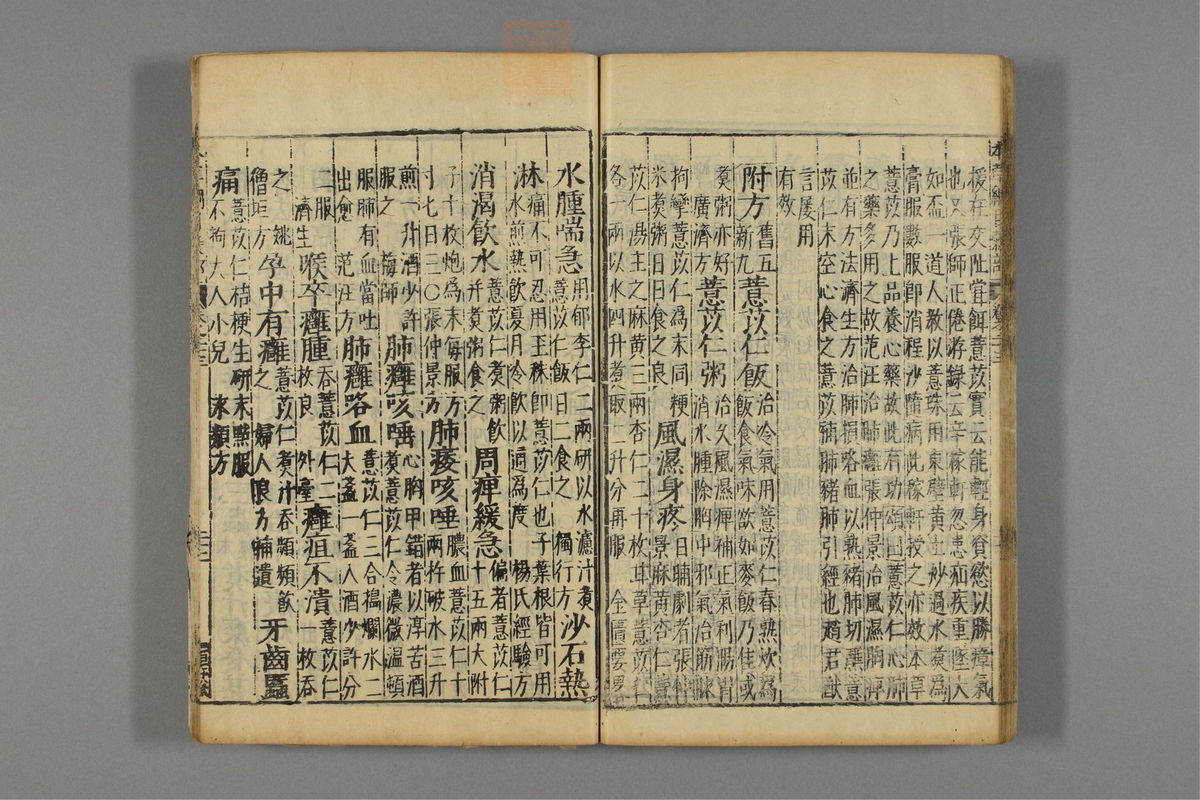 援在交趾嘗餌薏苡實云能輕身資慾以勝瘴氣
也又張師正倦游録云辛稼軒忽患疝疾重墜大
如盃一道人教以薏珠用東壁黄土炒過水煑為
膏服數服即消程沙隨病此稼軒授之亦效本草
薏苡乃上品養心藥故此有功頌曰薏苡仁心肺
之藥多用之故范汪治肺癰張仲景治風濕胸痺
並有方法濟生方治肺損咯血以熟猪肺切蘸薏
苡仁末空心食之薏苡補肺豬肺引經也趙君猷
言屢用
有效
附方舊五新九薏苡仁飯治冷氣用薏苡仁舂熟炊為飯食氣味欲如麥飯乃佳或
煑粥亦好廣濟方薏苡仁粥治久風濕痺補正氣利腸胃消水腫除胸中邪氣治筋脉
拘攣薏苡仁為末同粳米煑粥日日食之良風濕身疼日晡劇者張仲景麻黄杏仁薏
苡仁湯主之麻黄三兩杏仁二十枚甘草薏苡仁各一兩以水四升煑取二升分再服金匱要畧
水腫喘急用郁李仁二兩研以水濾汁煑薏苡仁飯日二食之獨行方沙石熱
淋痛不可忍用玉秣即薏苡仁也子葉根皆可用水煎熱飲夏月冷飲以通為度楊氏經驗方
消渴飲水薏苡仁煑粥飲并煑粥食之周痺緩急偏者薏苡仁十五兩大附
子十枚炮為末每服方寸七日三〇張仲景方肺痿咳唾膿血薏苡仁十兩杵破水三升
煎一升酒少許服之梅師肺癰咳唾心胸甲錯者以淳苦酒煑薏苡仁令濃微溫頓
服肺有血當吐出愈范汪方肺癰咯血薏苡仁三合搗爛水二大盞一盞入酒少許分
二服濟生喉卒癰腫吞薏苡仁二枚良外臺癰疽不潰薏苡仁一枚吞
之姚僧垣方孕中有癰薏苡仁煑汁頻頻飲之婦人良方補遺牙齒䘌
痛薏苡仁桔梗生研末點服不拘大人小兒永類方